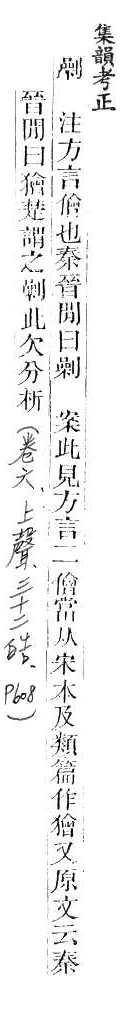 集韻考正
𠞰　注方言儈也秦晉閒曰𠞰　案此見方言二儈當从宋本及類篇作獪又原文云秦
晉閒曰獪楚謂之𠞰此欠分析(卷六、上聲三十二皓、P608)